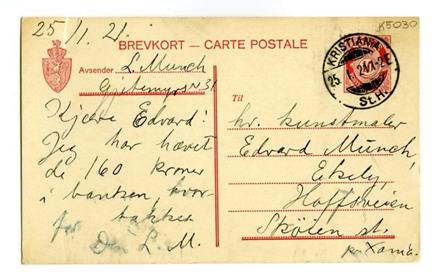 25/1. 21.
K5030
BREVKORT — CARTE POSTALE
Avsender L. Munch
N 31
KRISTIANIA
25
St.H.
Kjære Edvard!
Jeg har hævet
de 160 kroner
i banken hvor-
for takker
Den L. M.
Til
hr. kunstmaler
Edvard Munch
Ekely
Hoffsveien
Skøien st.
pr. Xania.